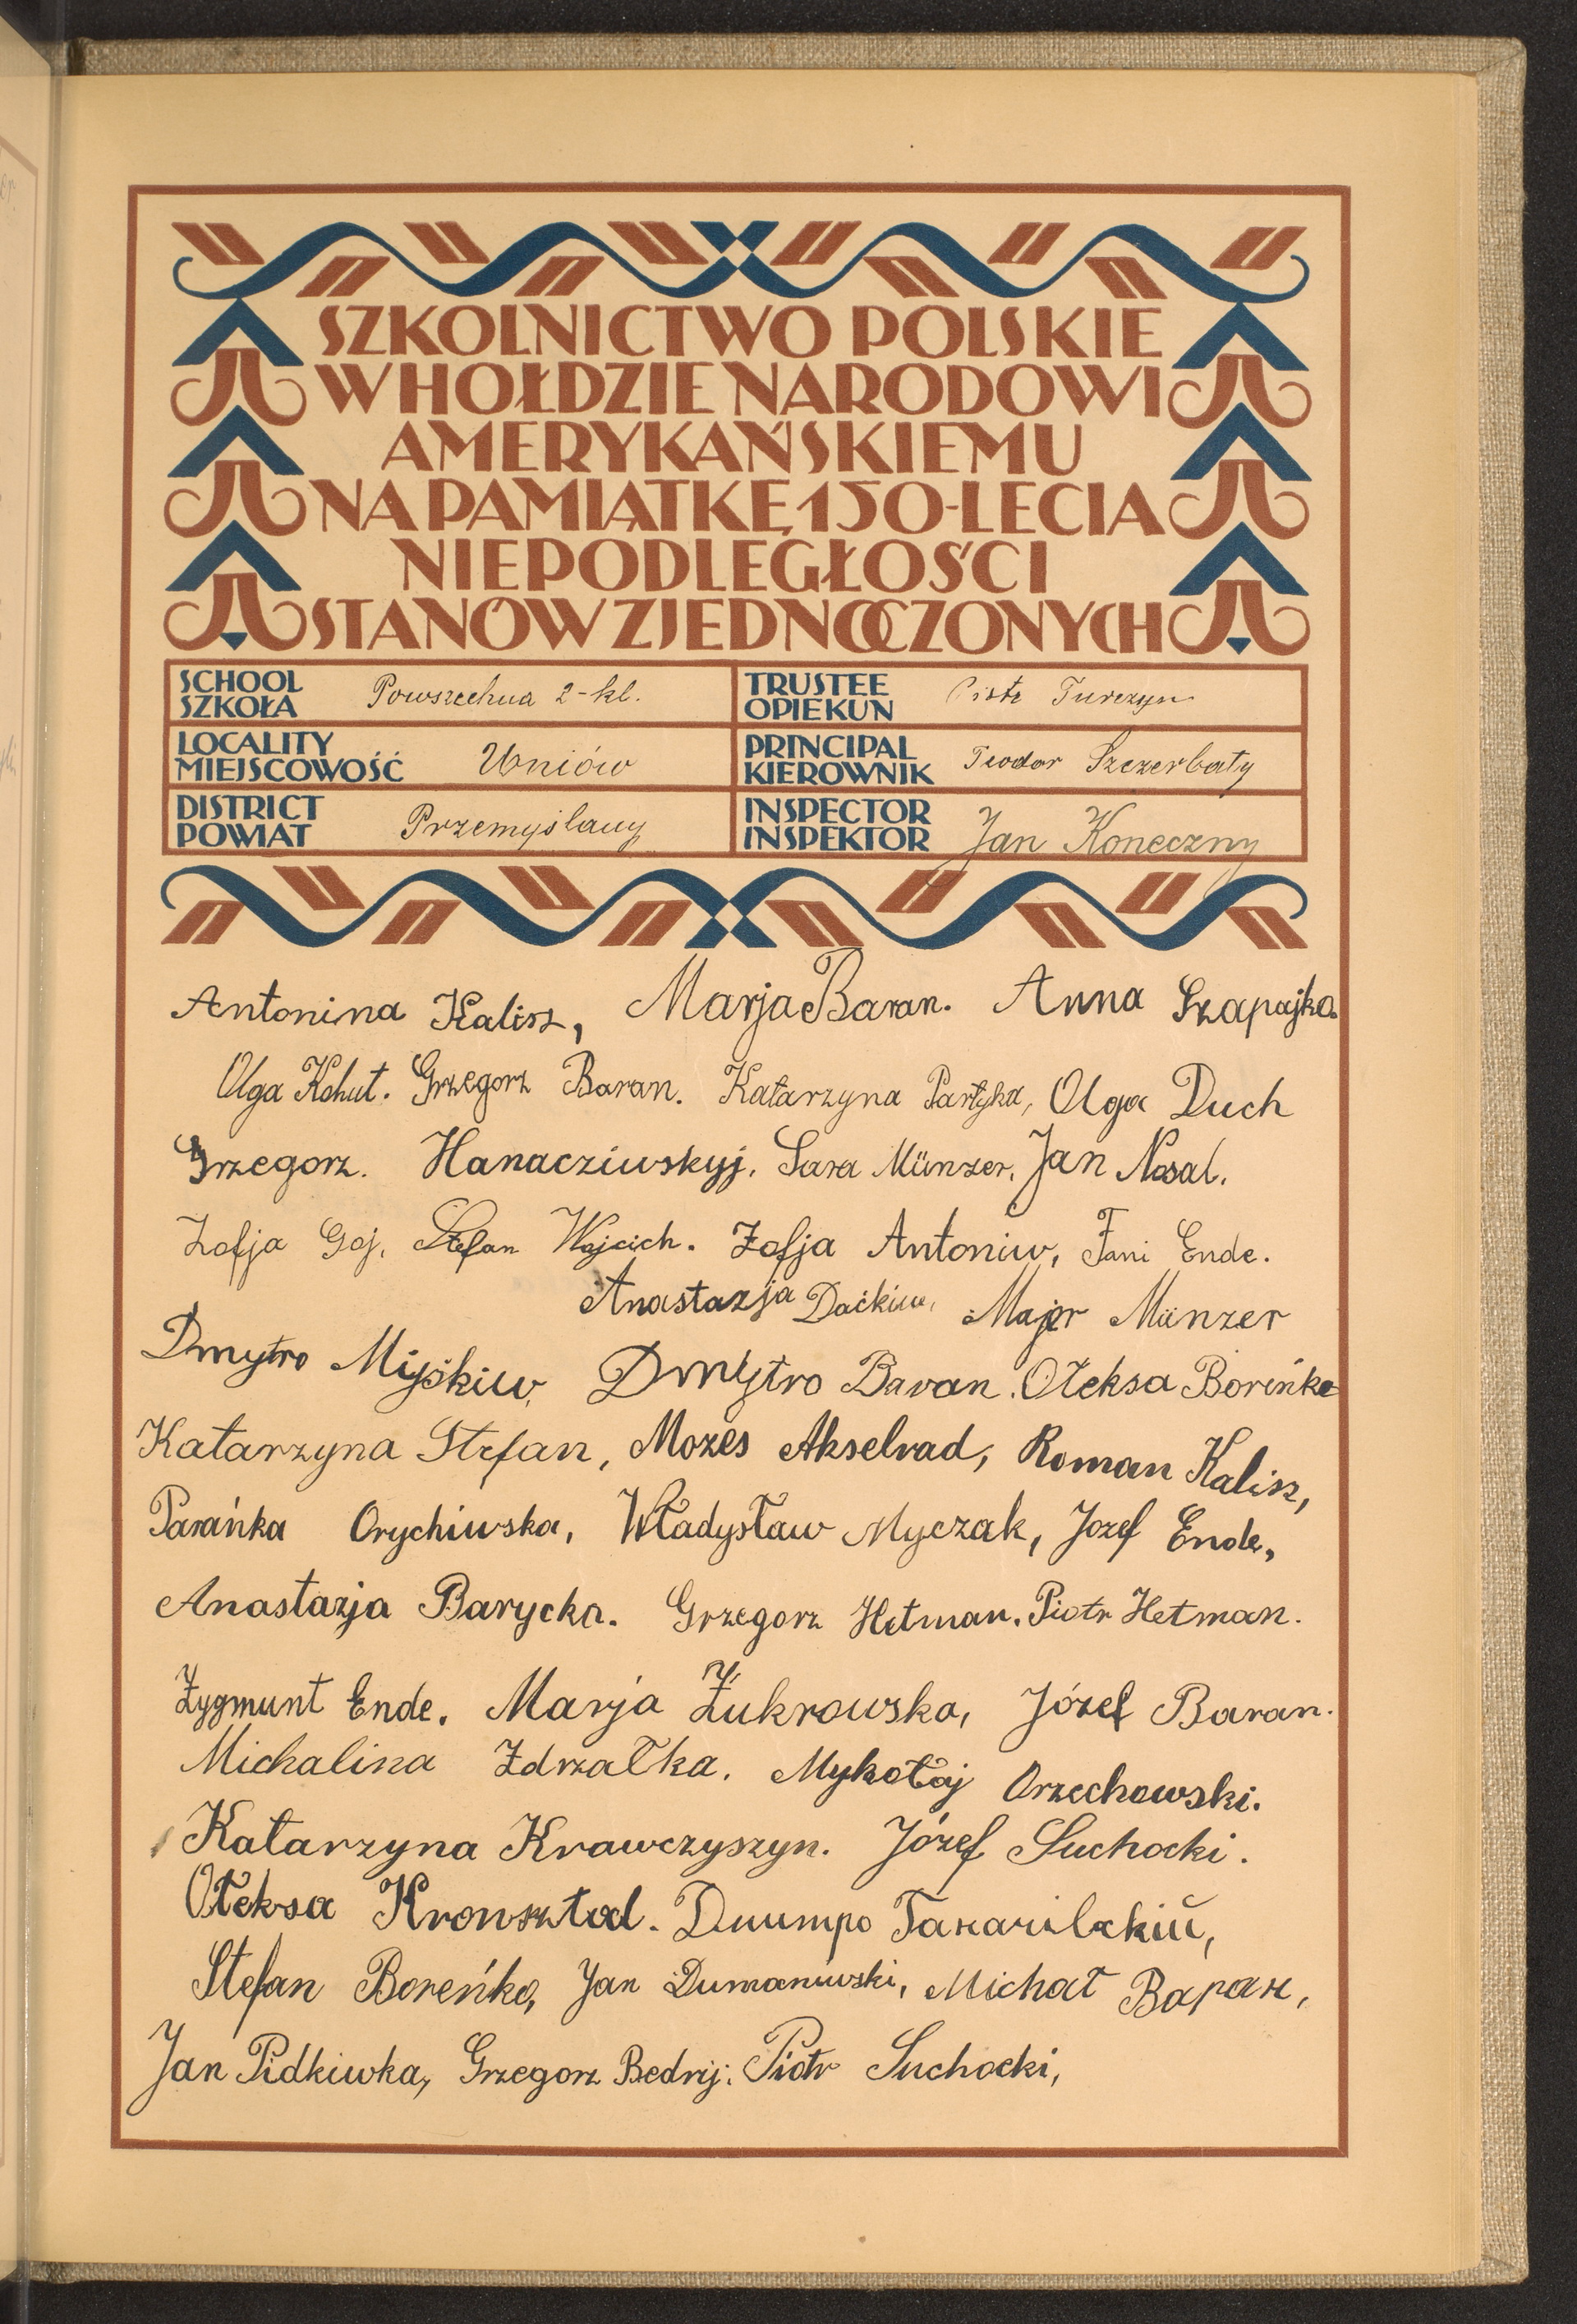 SZKOLNICTWO POLSKIE
W HOŁDZIE NARODOWI
AMERYKAŃSKIEMU
NA PAMIĄTKĘ 150-LECIA
NIEPODLEGŁOŚCI
STANÓW ZJEDNOCZONYCH
SCHOOL
SZKOŁA
Powszechna 2-kl.
TRUSTEE
OPIEKUN
Piotr Turczyn
LOCALITY
MIEJSCOWOŚĆ
Uniów
PRINCIPAL
KIEROWNIK
Teodor Szczerbaty
DISTRICT
POWIAT
Przemyślany
INSPECTOR
INSPEKTOR
Jan Koneczny
Antonina Kalisz, Marja Baran. Anna Szapajka.
Olga Kohut. Grzegorz Baran. Katarzyna Partyka, Olga Duch
Grzegorz. Hanacziwskyj. Sara Münzer. Jan Nosal.
Zofja Goj. Stefan Wojcich. Zofja Antoniw, Fani Ende.
Anastazja Daćkiw, Majer Münzer
Dmytro Myśkiw, Dmytro Baran. Ołeksa Boreńko
Katarzyna Stefan, Mozes Akselrad, Roman Kalisz,
Parańka Orychiwska, Władysław Myczak, Jozef Ende,
Anastazja Barycka. Grzegorz Hetman. Piotr Hetman.
Zygmunt Ende. Marja Żukrowska, Józef Baran.
Michalina Zdrzałka. Mykołaj Orzechowski.
Katarzyna Krawczyszyn. Józef Suchocki.
Ołeksa Kronsztad. Дмитро
Stefan Boreńko, Jan Dumaniwski, Michał Баран,
Jan Pidkiwka, Grzegorz Bedrij. Piotr Suchocki,